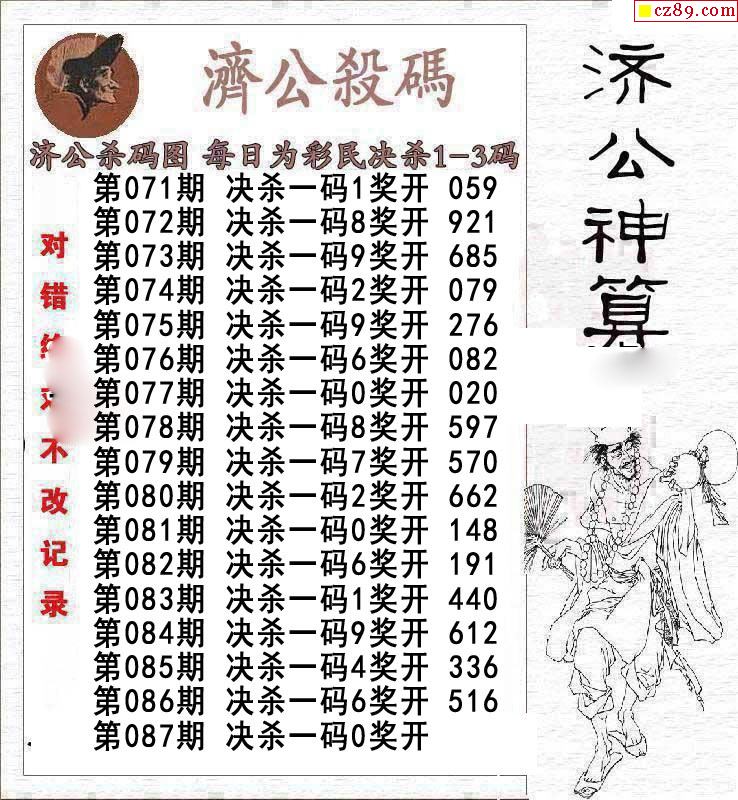 cz89.com
濟公殺碼
济公杀码图 每日为彩民决杀1-3码
第071期 决杀一码1奖开 059
第072期 决杀一码8奖开 921
第073期 决杀一码9奖开 685
第074期 决杀一码2奖开 079
第075期 决杀一码9奖开 276
第076期 决杀一码6奖开 082
第077期 决杀一码0奖开 020
第078期 决杀一码8奖开 597
第079期 决杀一码7奖开 570
第080期 决杀一码2奖开 662
第081期 决杀一码0奖开 148
第082期 决杀一码6奖开 191
第083期 决杀一码1奖开 440
第084期 决杀一码9奖开 612
第085期 决杀一码4奖开 336
第086期 决杀一码6奖开 516
第087期 决杀一码0奖开
对错不改记录
济公神算